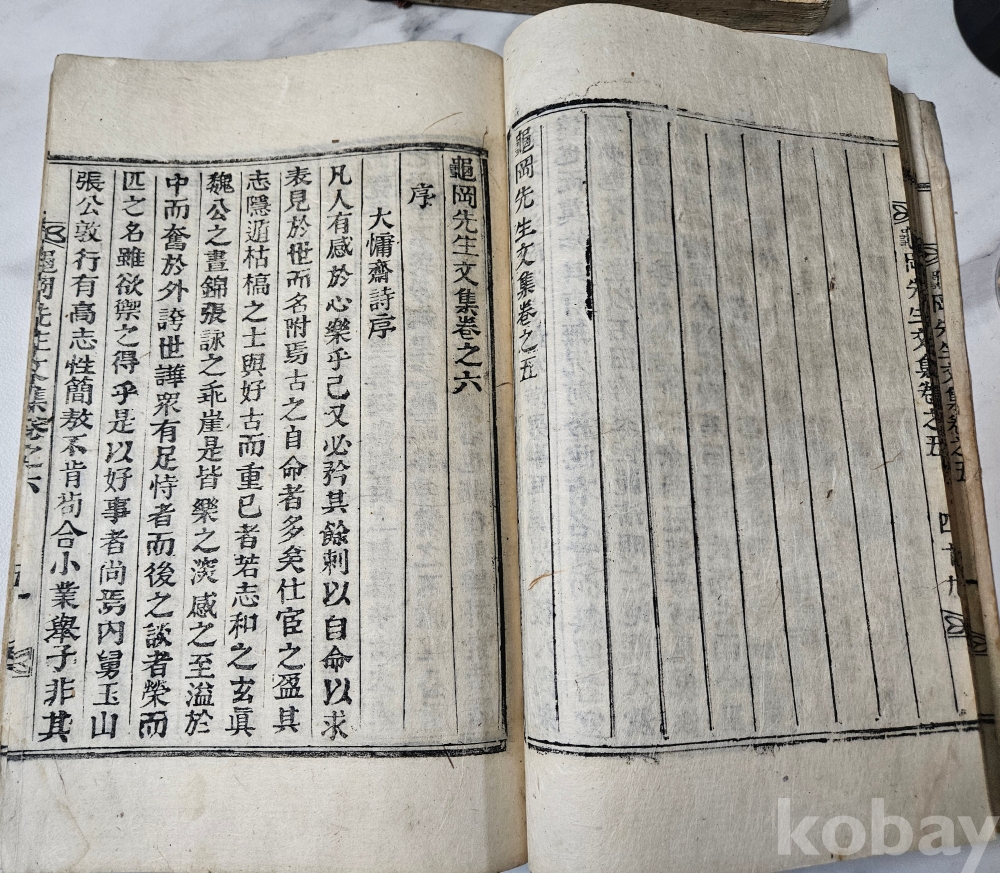 龜岡先生文集卷之五
龜岡先生文集卷之五
龜岡先生文集卷之五
龜岡先生文集卷之六
序
大慵齋詩序
凡人有感於心樂乎己又必矜其餘剩以自命以求
表見於世而名附焉古之自命者多矣仕宦之盈其
志隱遁枯槁之士與好古而重已者若志和之玄眞
魏公之晝錦張詠之乖崖是皆樂之深感之至溢於
中而奮於外誇世譁衆有足恃者而後之談者榮而
匹之名雖欲禦之得乎是以好事者尚焉內舅玉山
張公敦行有高志性簡敖不肯苟合小業擧子非其
龜岡先生文集卷之六
一
kobay